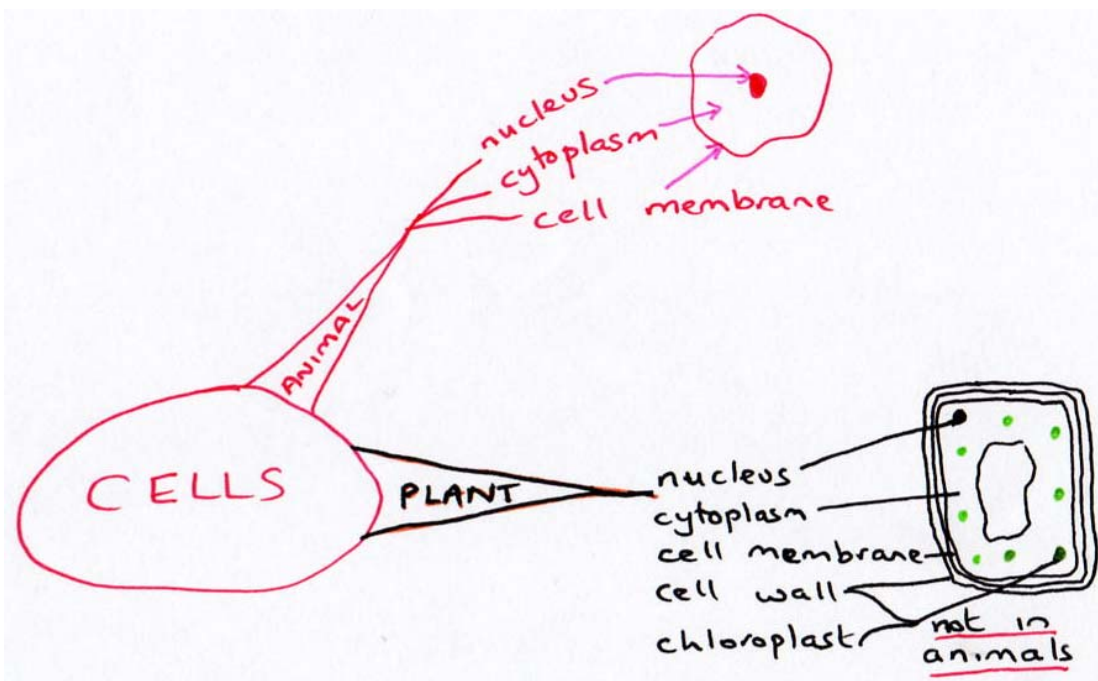 nucleus
cytoplasm
cell membrane
ANIMAL
CELLS
PLANT
nucleus
cytoplasm
cell membrane
cell wall
chloroplast
not in
animals